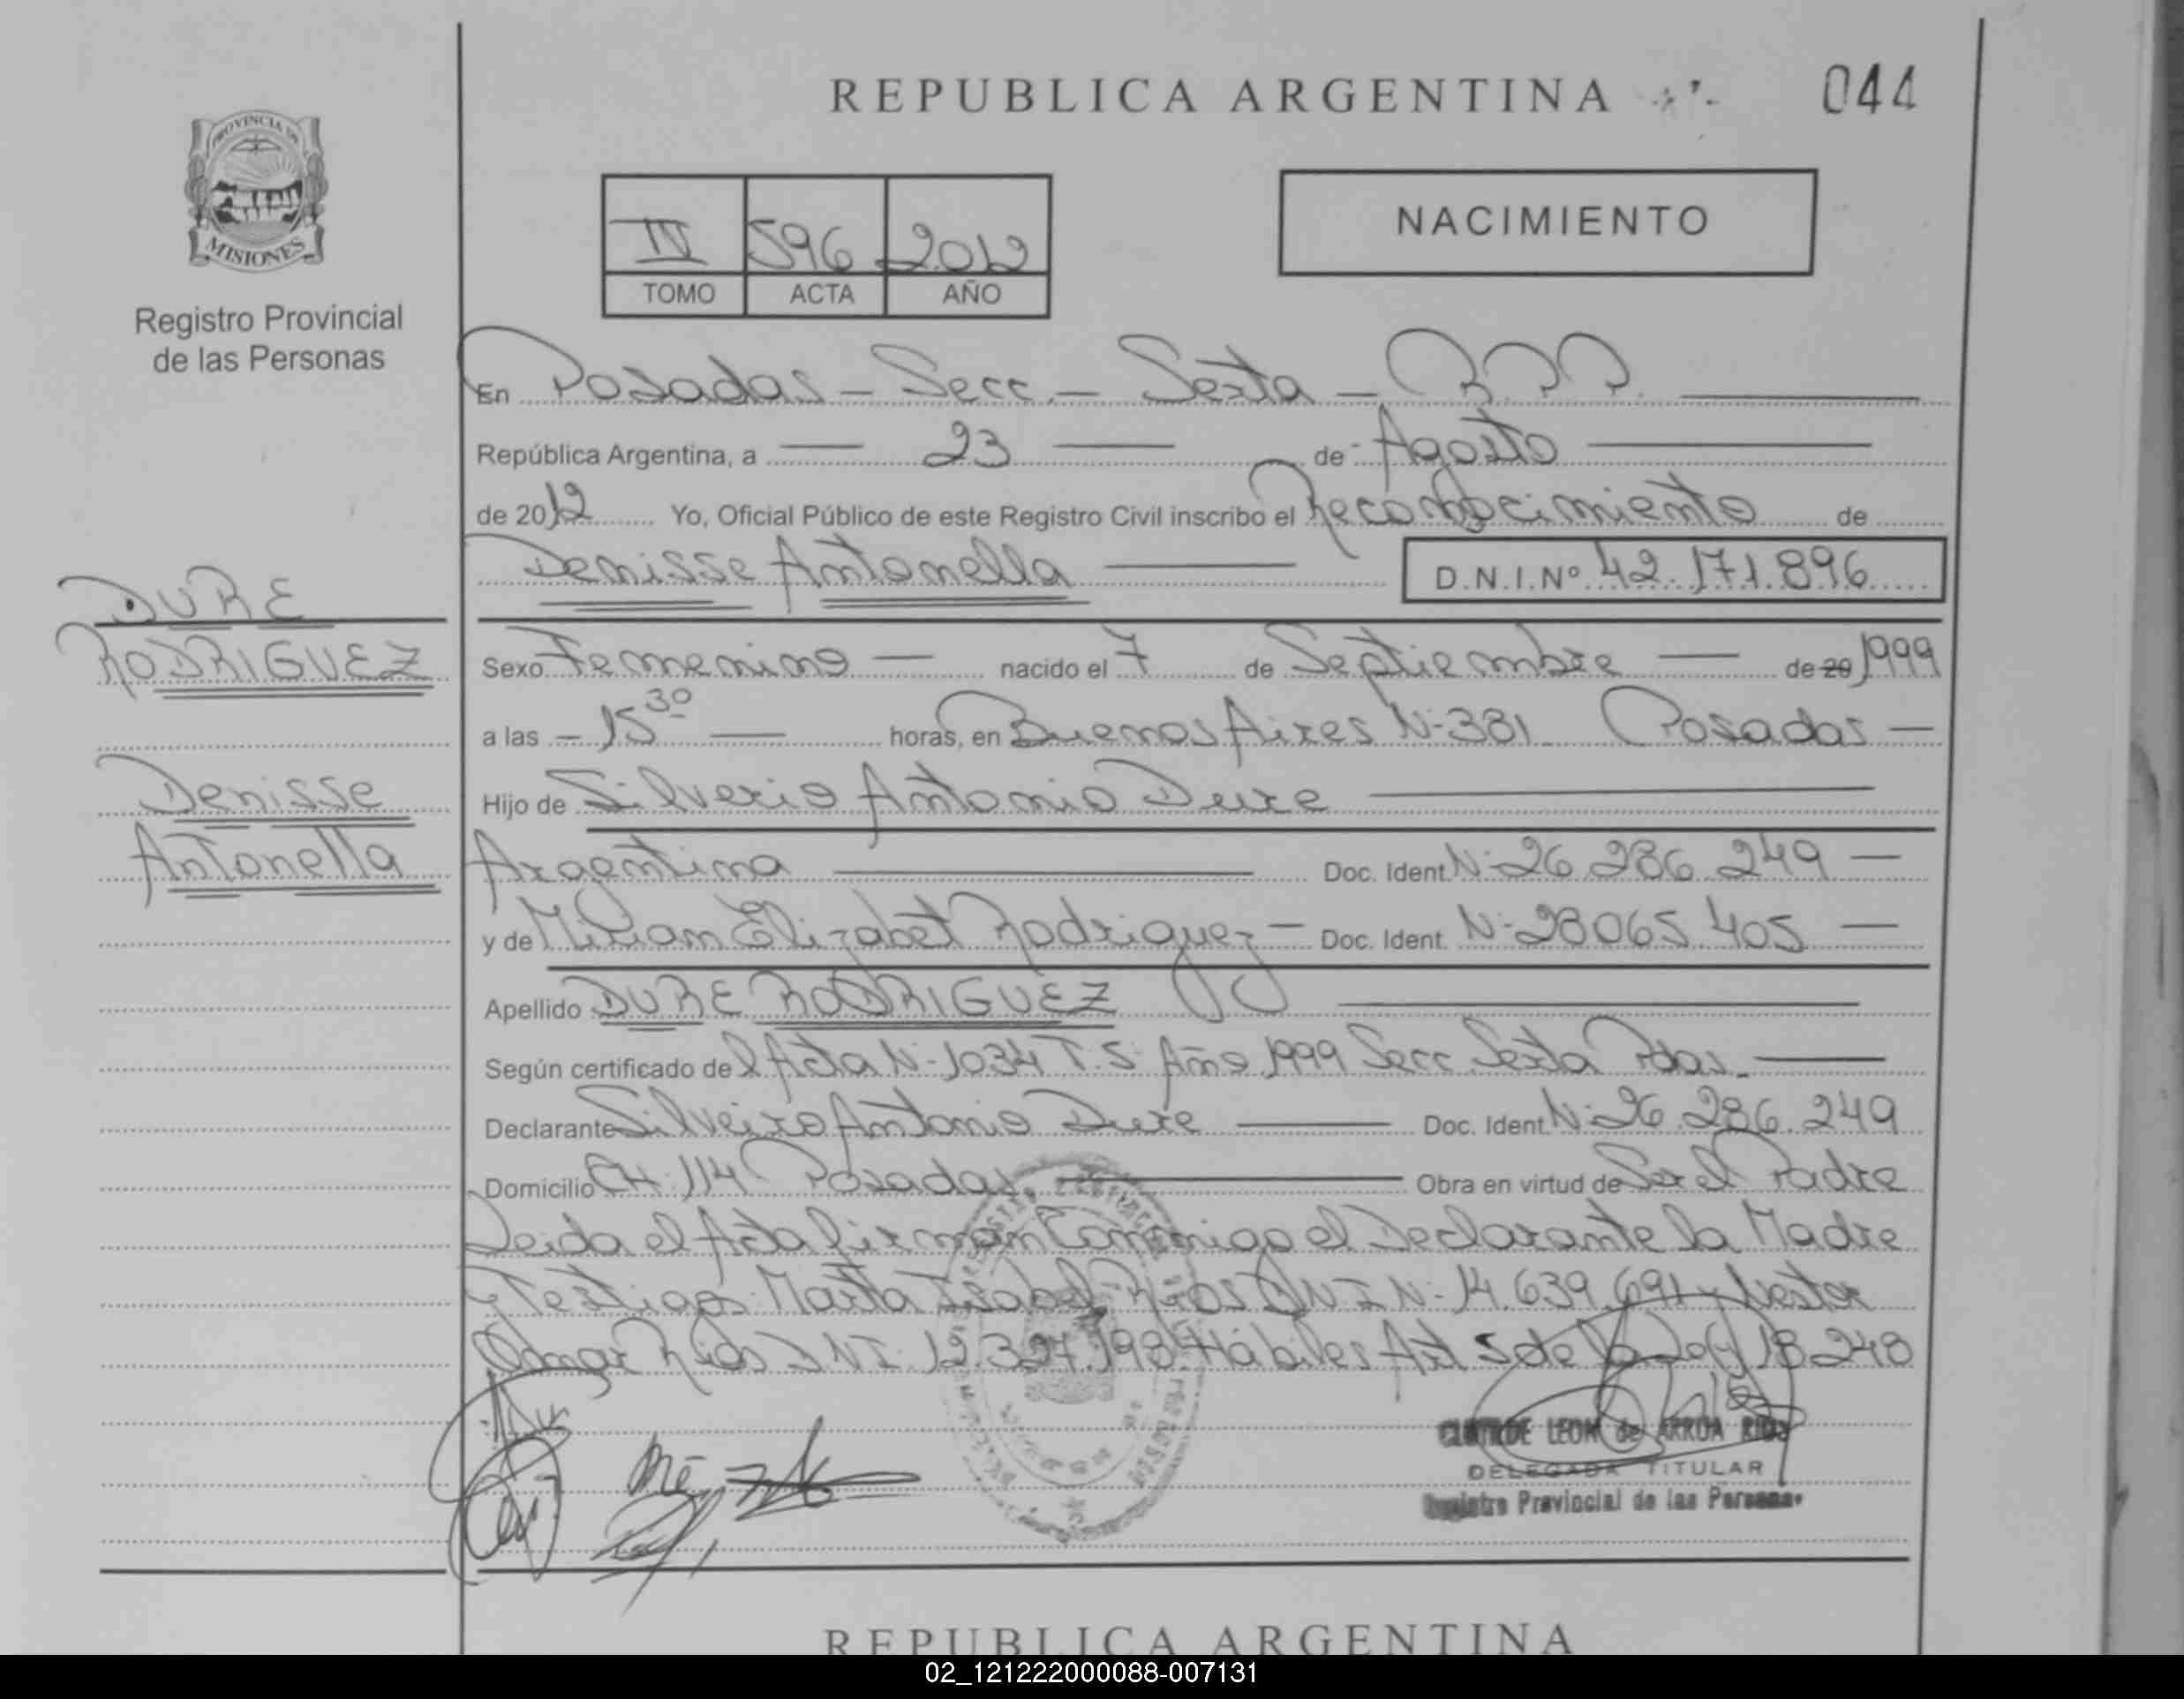 REPUBLICA ARGENTINA
044
PROVINCIA DE
MISIONES
Registro Provincial
de las Personas
IV 596 2012
TOMO ACTA AÑO
NACIMIENTO
En Posadas - Secc. - Sexta - R.P.P.
República Argentina, a 23 de Agosto
de 2012 Yo, Oficial Público de este Registro Civil inscribo el Reconocimiento de
Denisse Antonella
D.N.I.Nº 42.171.896
DURE
RODRIGUEZ
Denisse
Antonella
Sexo Femenino - nacido el 7 de Septiembre de 20 1999
a las - 15 30 horas, en Buenos Aires N-381 Posadas -
Hijo de Silverio Antonio Dure
Argentina Doc. Ident. N-26.286.249 -
y de Miriam Elizabet Rodriguez - Doc. Ident. N-28065.405 -
Apellido DURE RODRIGUEZ
Según certificado del Acta N-1034 T.5 Año 1999 Secc Sexta Pdas.
Declarante Silveiro Antonio Dure Doc. Ident. N-26.286.249
Domicilio CH 114 Posadas. Obra en virtud de Ser el Padre
Leida el Acta firman Conmigo el Declarante la Madre
y Testigos: Marta Isabel Rios DNI N-14.639.691 y Nestor
Omar Rios DNI 12.327.198 Hábiles Art 5 de la Ley 18.248
CLOTILDE LEON de ARRUA RIOS
DELEGADA TITULAR
Registro Provincial de las Personas
REPUBLICA ARGENTINA
02_121222000088-007131